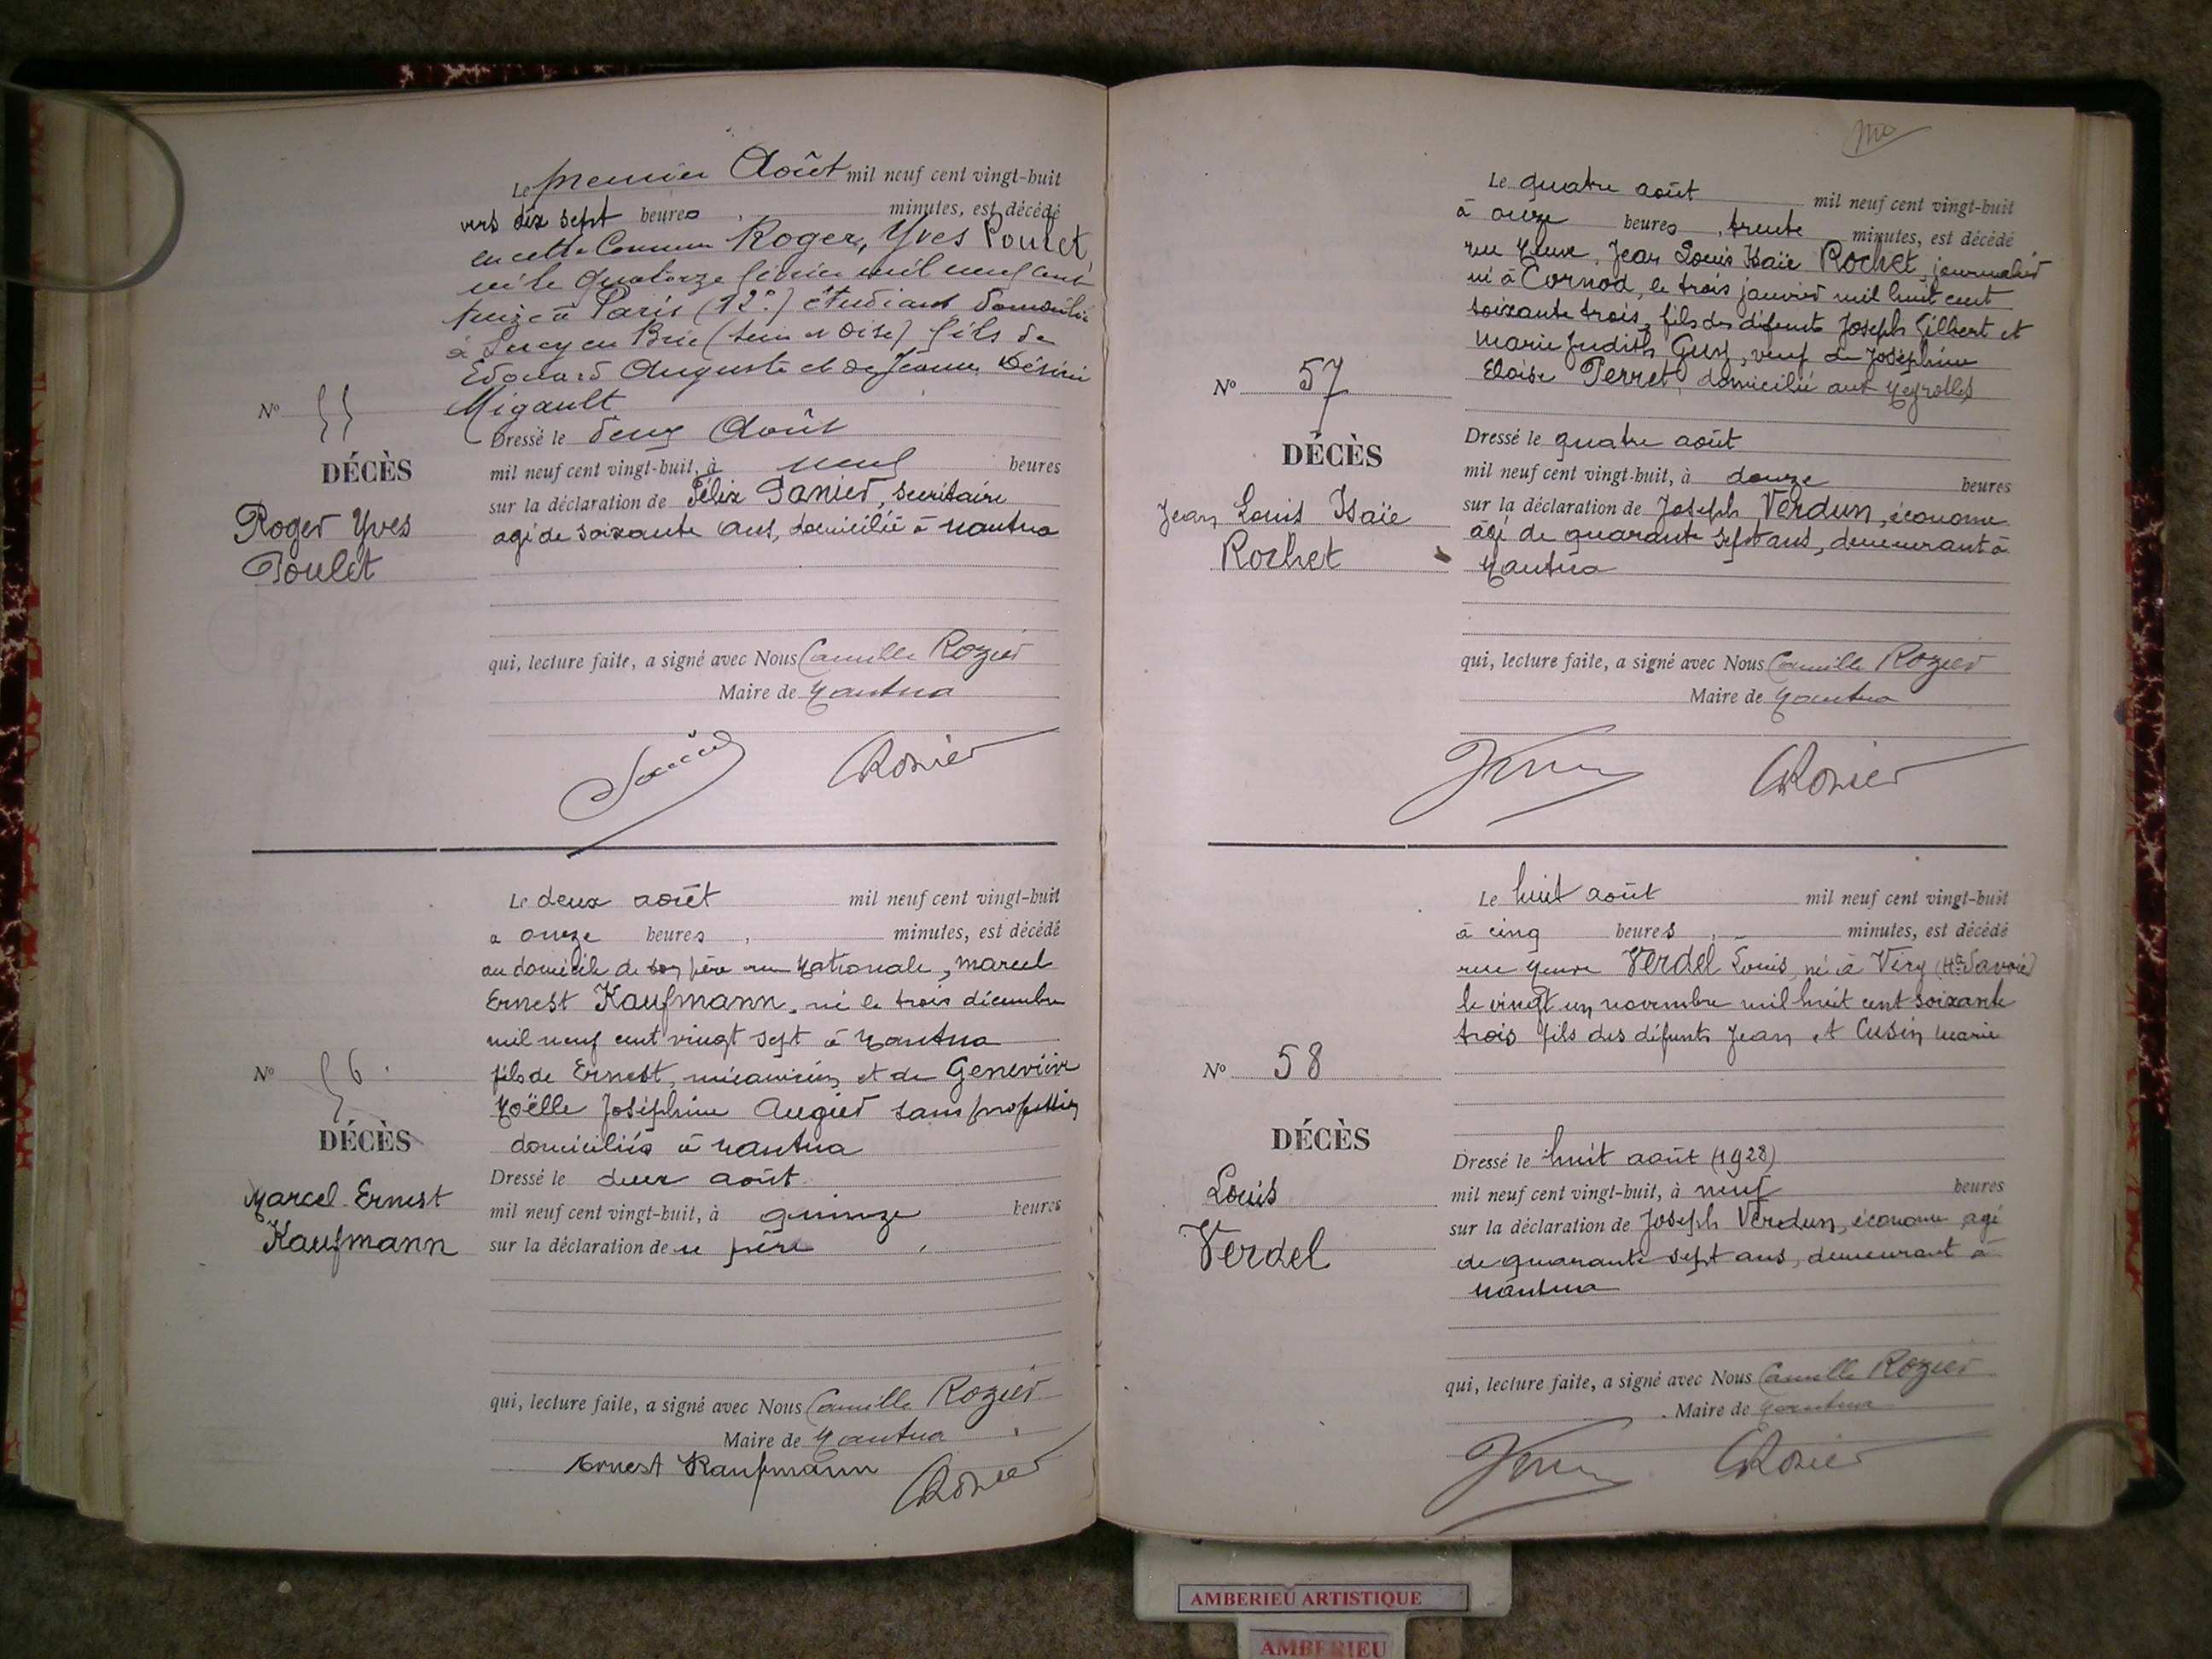 Le premier Août mil neuf cent vingt-huit
vers dix sept heures minutes, est décédé
en cette Commune Roger, Yves Poulet,
né le quatorze février mil neuf cent
seize à Paris (12e) étudiant domicilié
à en Brie (Seine et Oise) fils de
Edouard Auguste et de Jeanne Désirée
Migault
No 55
Dressé le deux Août
DÉCÈS
mil neuf cent vingt-huit, à neuf heures
sur la déclaration de Félix Janier, secrétaire
Roger Yves
Poulet
agé de soixante ans, domicilié à Nantua
qui, lecture faite, a signé avec Nous Camille Rozier
Maire de Nantua
CRozier
Le deux août mil neuf cent vingt-huit
à onze heures minutes, est décédé
au domicile de son père rue Nationale, Marcel
Ernest Kaufmann, né le trois décembre
mil neuf cent vingt sept à Nantua
No 56
fils de Ernest, mécanicien et de Geneviève
Noëlle Joséphine Augier sans profession
DÉCÈS
domiciliés à Nantua
Dressé le deux août
Marcel Ernest
Kaufmann
mil neuf cent vingt-huit, à quinze heures
sur la déclaration de le père
qui, lecture faite, a signé avec Nous Camille Rozier
Maire de Nantua
Ernest Kaufmann CRozier
Le quatre août mil neuf cent vingt-huit
à onze heures, trente minutes, est décédé
rue Neuve, Jean Louis Isaïe Rochet, journalier
né à Cornod, le trois janvier mil huit cent
soixante trois, fils des défunts Joseph Gilbert et
Marie Judith Guy, veuf de Joséphine
Eloise Perret, domicilié aux Neyrolles
No 57
DÉCÈS
Dressé le quatre août
mil neuf cent vingt-huit, à douze heures
Jean Louis Isaïe
Rochet
sur la déclaration de Joseph Verdun, économe
âgé de quarante sept ans, demeurant à
Nantua
qui, lecture faite, a signé avec Nous Camille Rozier
Maire de Nantua
CRozier
Le huit août mil neuf cent vingt-huit
à cinq heures, _ minutes, est décédé
rue Neuve Verdel Louis, né à Viry (Hte Savoie)
le vingt un novembre mil huit cent soixante
trois fils des défunts Jean et Cusin Marie
No 58
DÉCÈS
Dressé le huit août (1928)
Louis
Verdel
mil neuf cent vingt-huit, à neuf heures
sur la déclaration de Joseph Verdun, économe agé
de quarante sept ans, demeurant à
Nantua
qui, lecture faite, a signé avec Nous Camille Rozier
Maire de Nantua
CRozier
AMBERIEU ARTISTIQUE
AMBERIEU